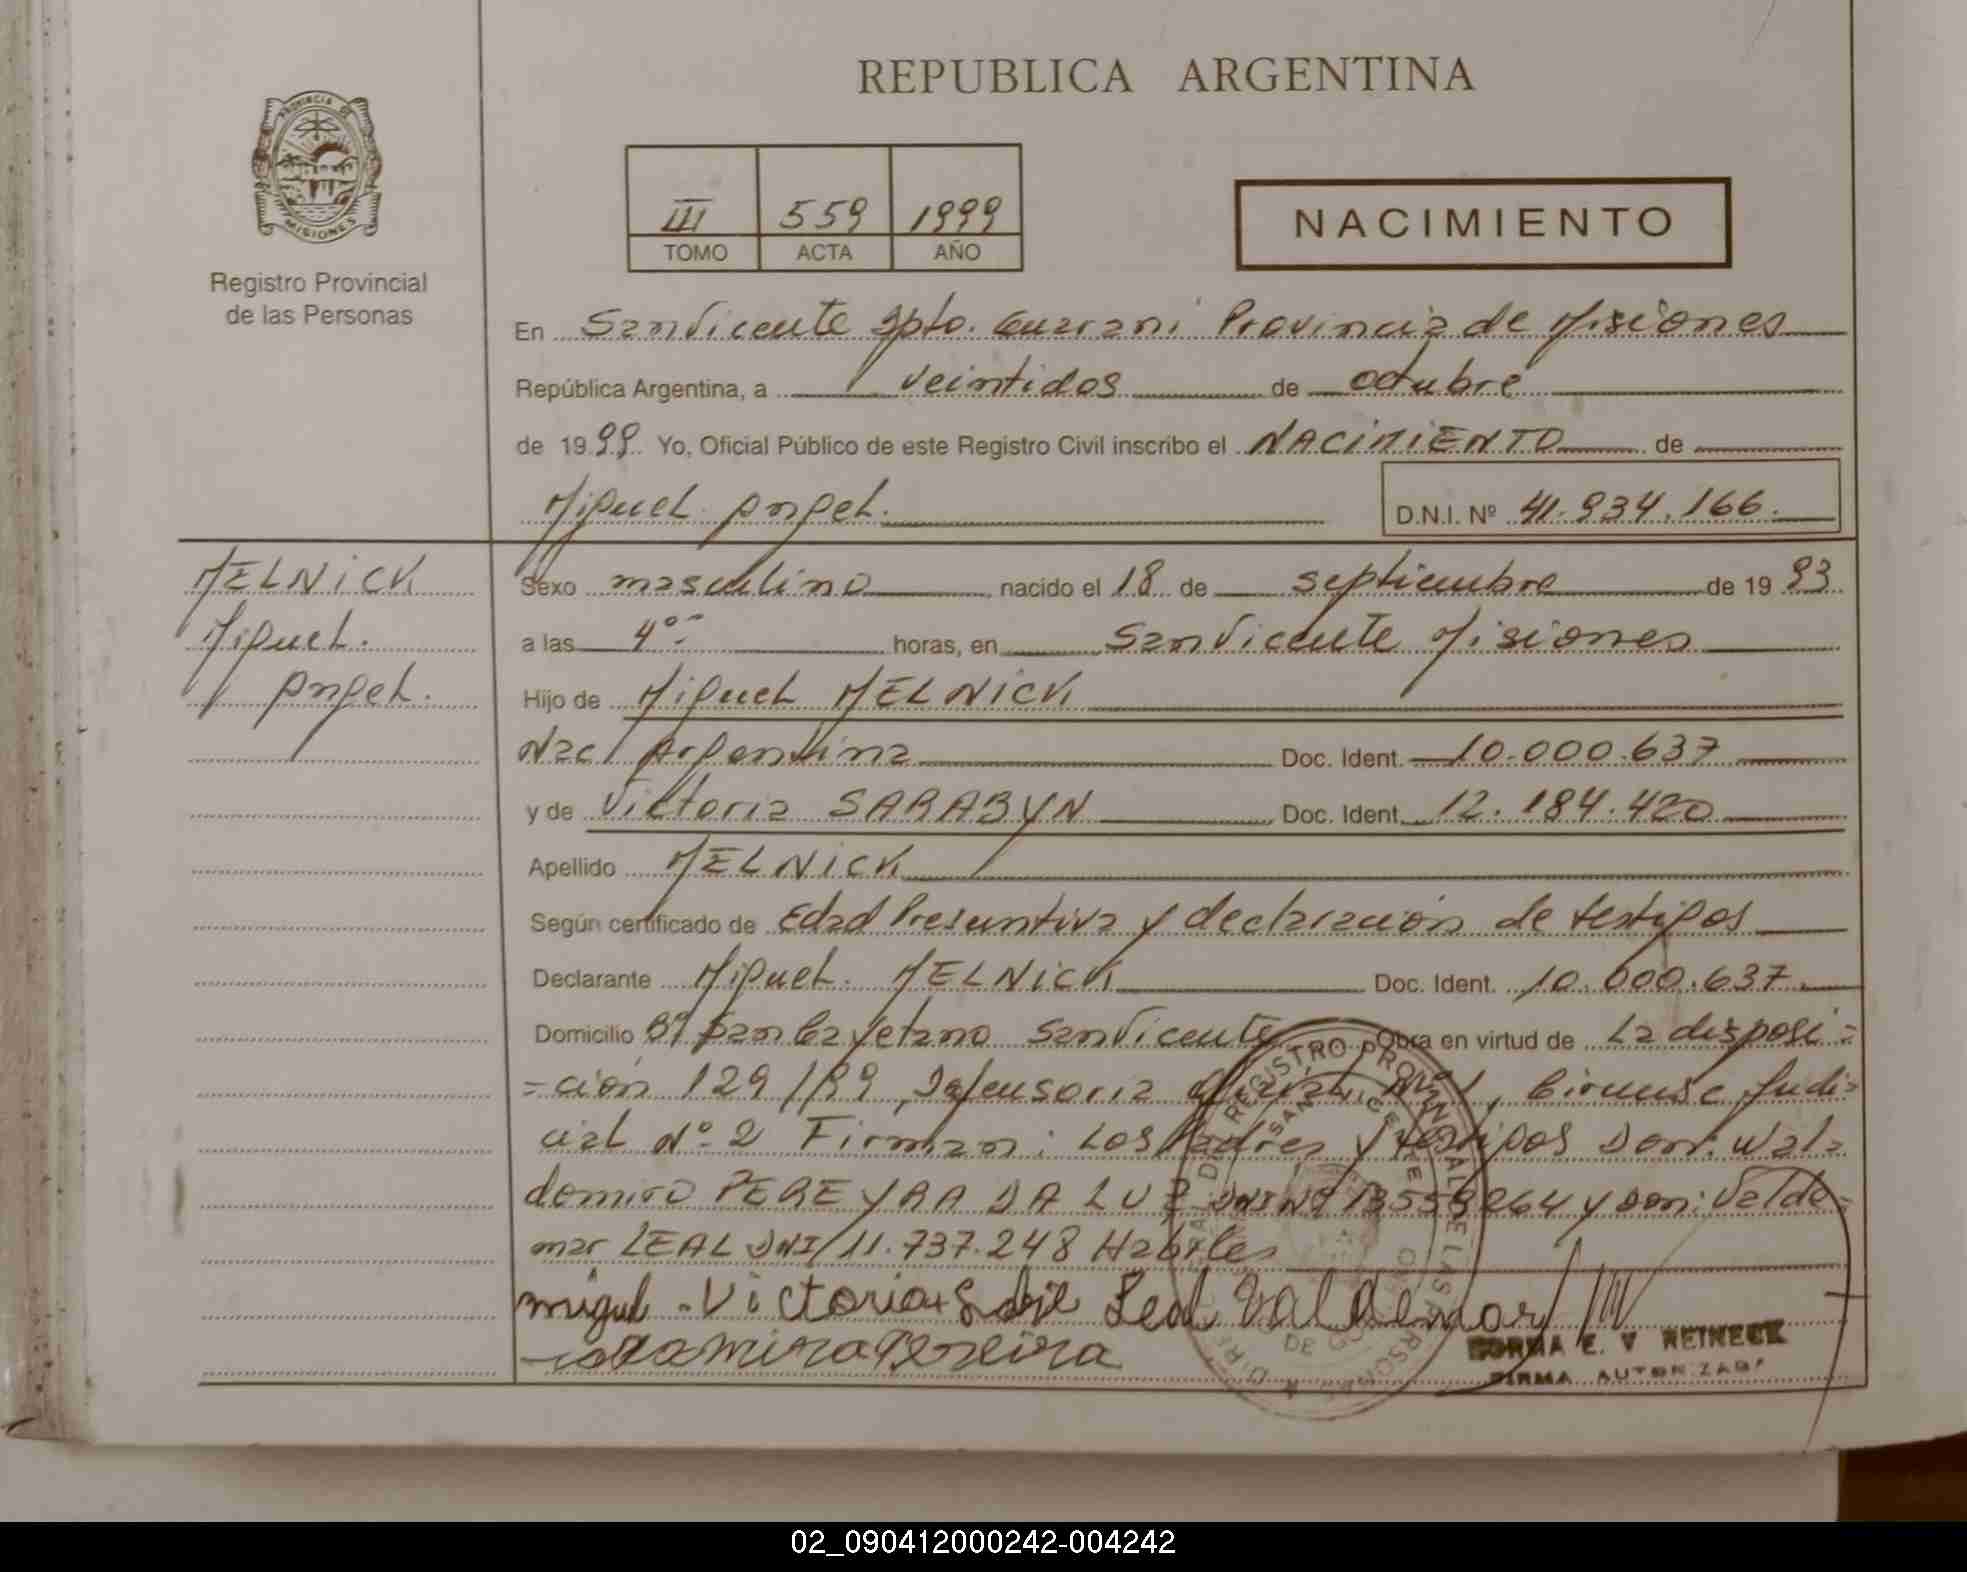 REPUBLICA ARGENTINA
PROVINCIA DE
MISIONES
Registro Provincial
de las Personas
III 559 1999
TOMO ACTA AÑO
NACIMIENTO
En San Vicente Dpto. Guarani Provincia de Misiones
República Argentina, a veintidos de octubre
de 1999 Yo, Oficial Público de este Registro Civil inscribo el NACIMIENTO de
Miguel Angel. D.N.I. Nº 41.934.166.
MELNICK
Miguel.
Angel.
Sexo masculino nacido el 18 de septiembre de 19 93
a las 4º horas, en San Vicente Misiones
Hijo de Miguel MELNICK
Nac Argentina Doc. Ident. 10.000.637
y de Victoria SARABYN Doc. Ident. 12.184.420
Apellido MELNICK
Según certificado de Edad Presuntiva y declaración de testigos
Declarante Miguel. MELNICK Doc. Ident. 10.000.637
Domicilio Bº San Cayetano San Vicente Obra en virtud de La disposi=
=ción 129/99, Defensoria Nº 1, Circunsc Judi=
cial Nº 2 Firman: Los Padres y testigos Don: Wal=
demiro PEREYRA DA LUZ DNI Nº y Don: Valde=
mar LEAL DNI 11.737.248 Habiles
Migul - Victoria Leal Valdemar
Ramiro Pereira
REGISTRO PROVINCIAL DE LAS PERSONAS
SAN VICENTE
NORMA E. V REINECK
FIRMA AUTORIZADA
02_090412000242-004242